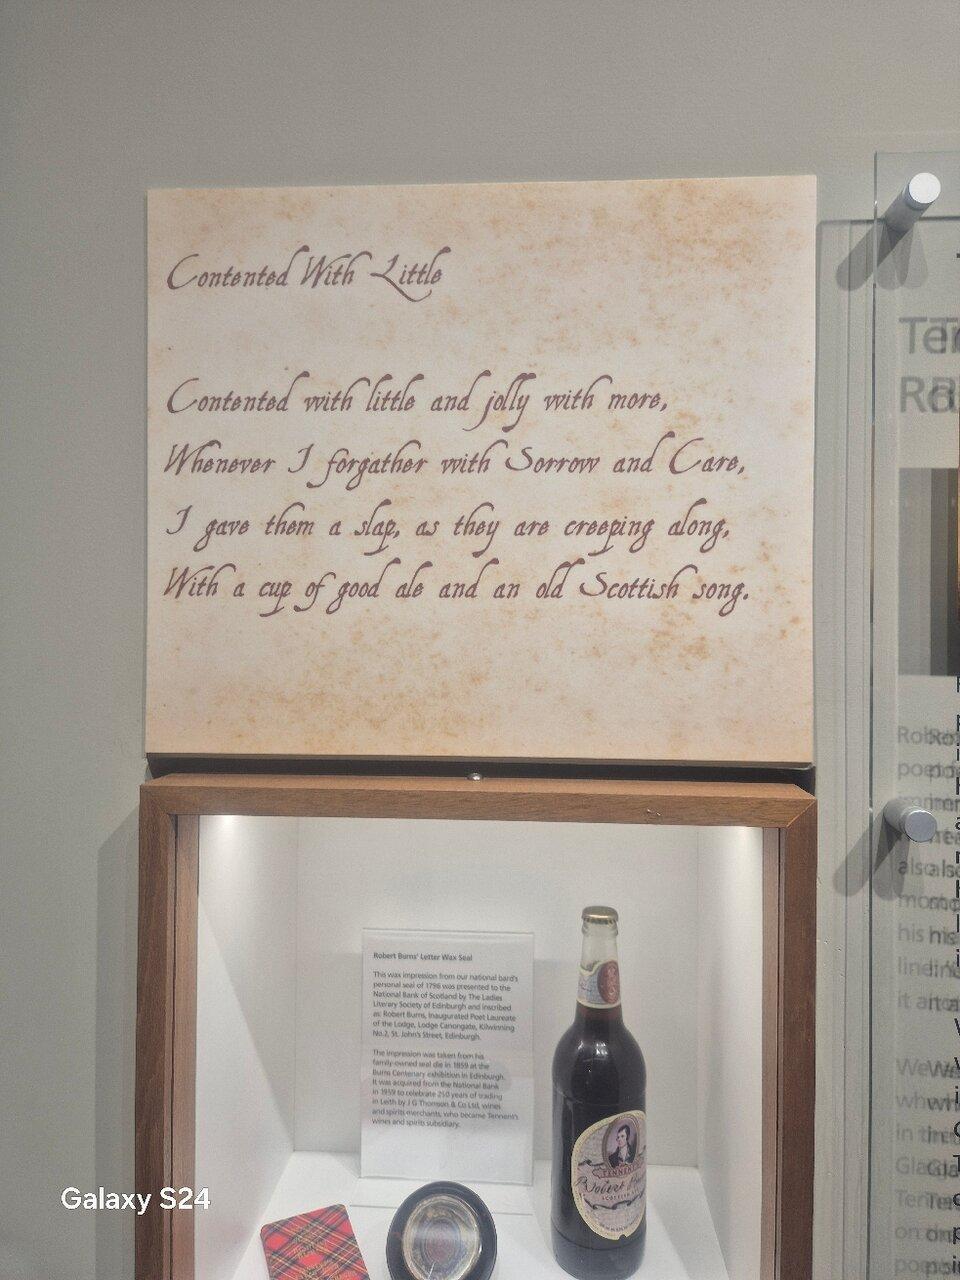 Contented With Little
Contented with little and jolly with more,
Whenever I forgather with Sorrow and Care,
I gave them a slap, as they are creeping along,
With a cup of good ale and an old Scottish song.
Robert Burns' Letter Wax Seal
This wax impression from our national bard's
personal seal of 1796 was presented to the
National Bank of Scotland by The Ladies
Literary Society of Edinburgh and inscribed
as: Robert Burns, Inaugurated Poet Laureate
of the Lodge, Lodge Canongate, Kilwinning
No.2, St. John's Street, Edinburgh.
The impression was taken from his
family-owned seal die in 1859 at the
Burns Centenary exhibition in Edinburgh.
It was acquired from the National Bank
in 1959 to celebrate 250 years of trading
in Leith by J G Thomson & Co Ltd, wines
and spirits merchants, who became Tennent's
wines and spirits subsidiary.
TENNENT'S
Robert
SCOTTISH
Galaxy S24